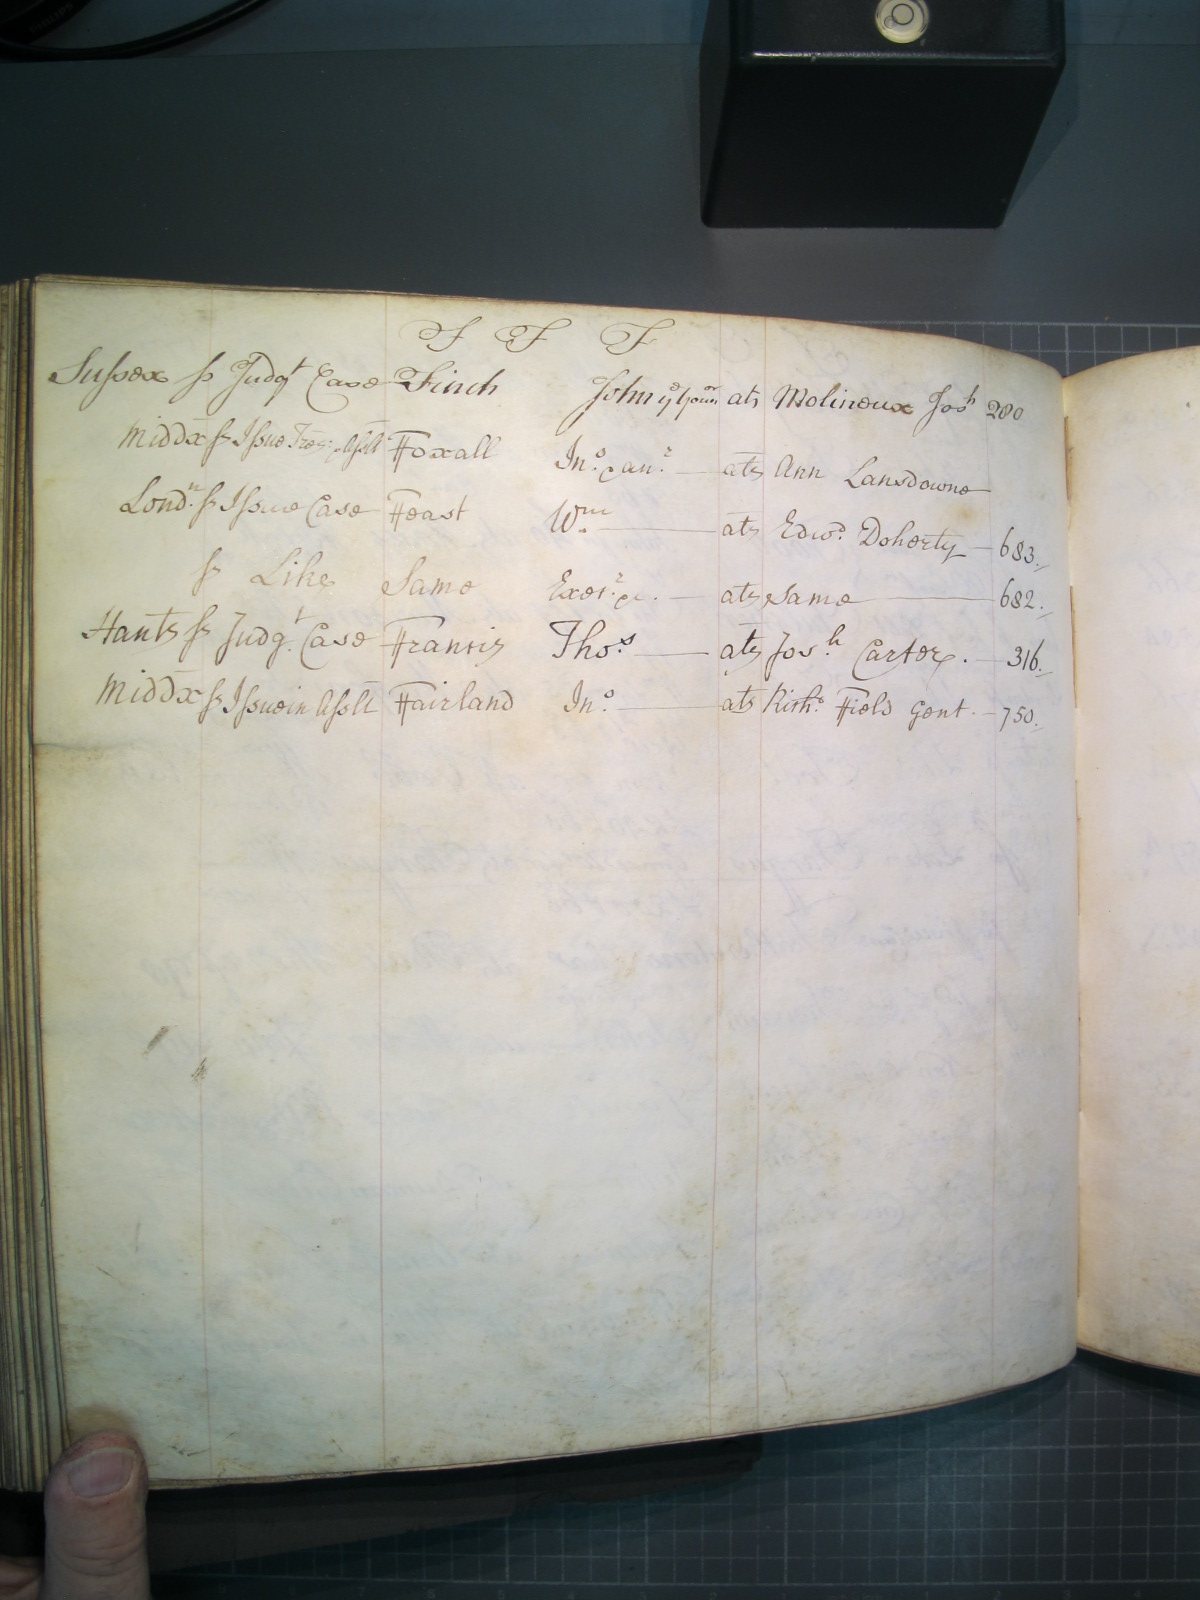 F F F
Sussex ss Judgt Case Finch John ye younr ats Molineux Josh 280
Middx ss Issue Tres: Asslt Foxall Jno. & anr. ats Ann Lansdowne
Londn. ss Issue Case Feast Wm. ats Edwd. Doherty 683.
ss Like Same Exor. &c. ats Same 682.
Hants ss Judgt. Case Francis Thos. ats Josh Carter. 316.
Middx ss Issue in Asslt Fairland Jno. ats Richd. Field Gent. 750.